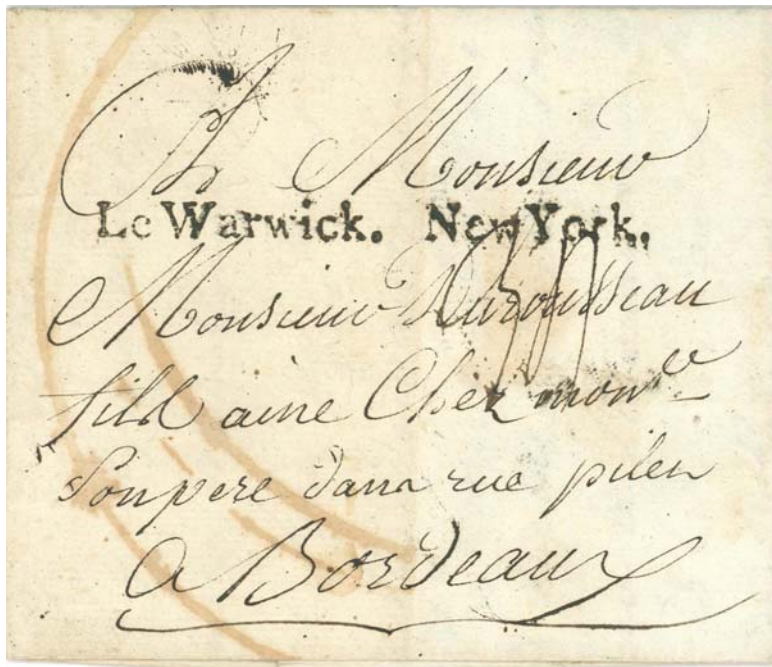 A Monsieur
Le Warwick. New York.
Monsieur
fils ainé Chez mon.
Son pere dans rue piler
a Bordeaux